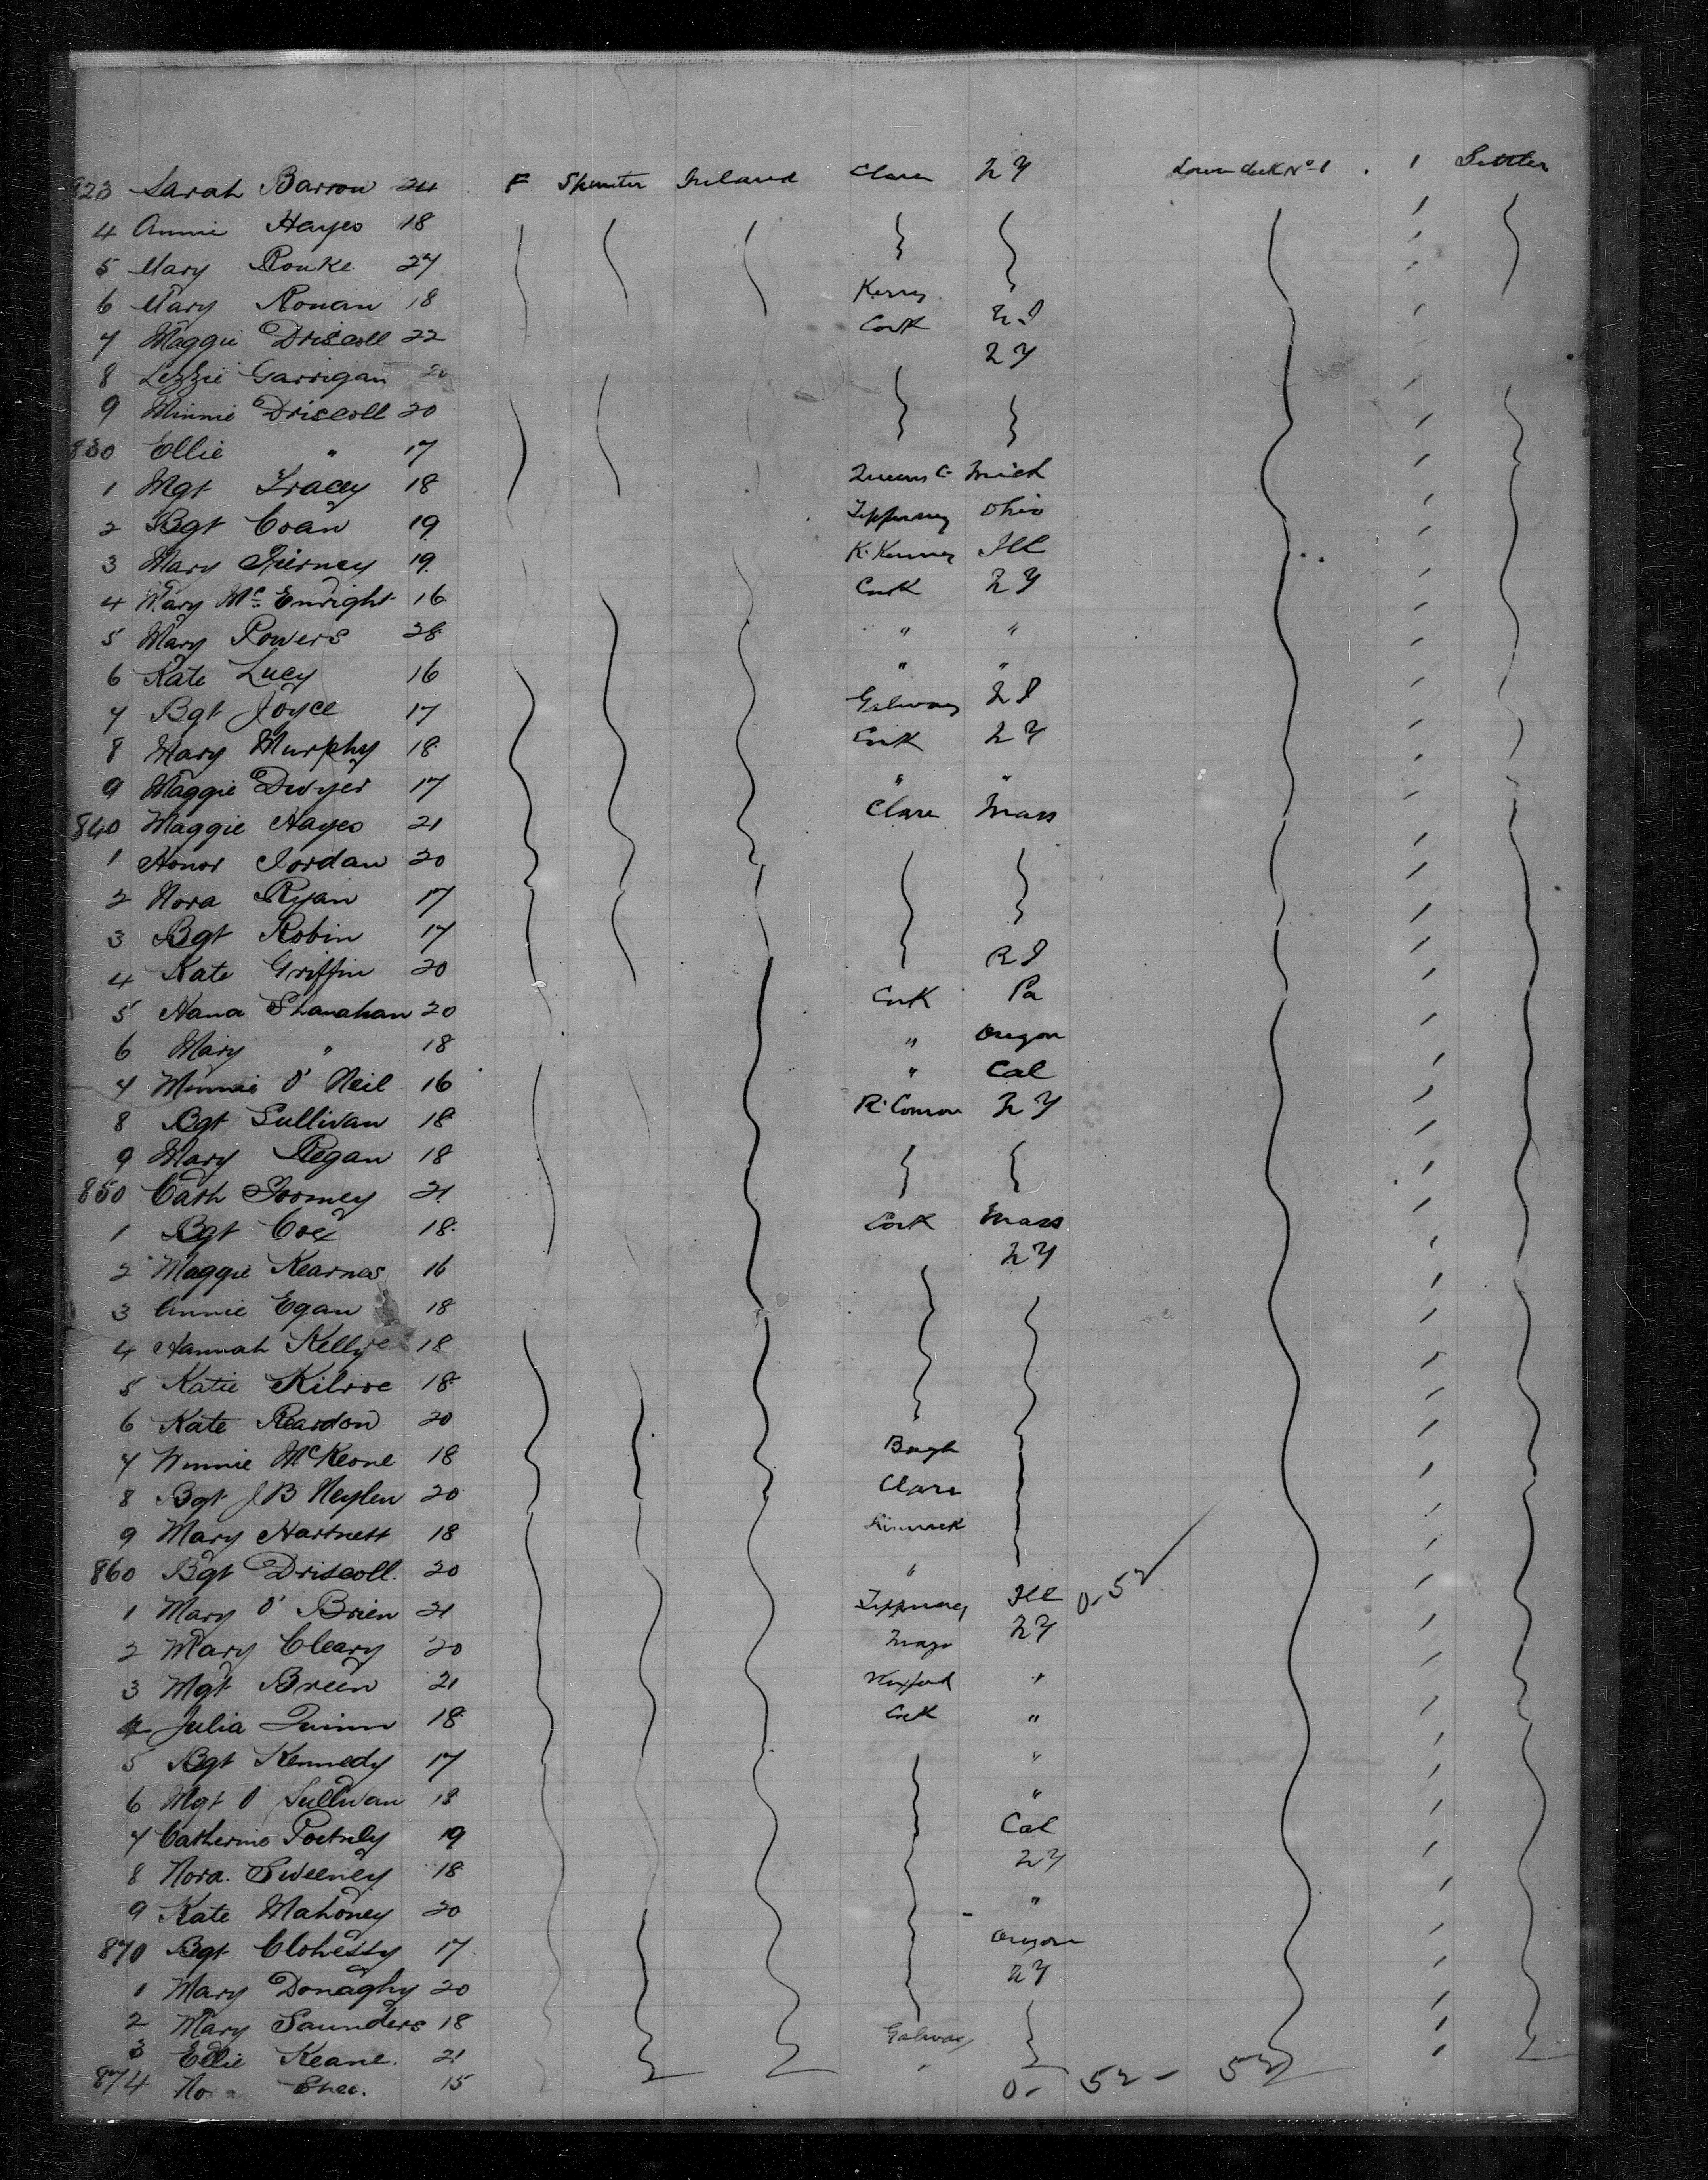 823 Sarah Barron 24 F Spinster Ireland Clare NY Lower deck No 1 1 Settler
4 Annie Hayes 18
5 Mary Rouke 27
6 Mary Ronan 18 Kerry
7 Maggie Driscoll 22 Cork
8 Lizzie Garrigan 20 NY
9 Minnie Driscoll 20
830 Ellie " 17
1 Mgt Tracey 18 Queens C Mich
2 Bgt Coan 19 Tipperary Ohio
3 Mary Tierney 19 Ill
4 Mary Mc Enright 16 Cork NY
5 Mary Powers 28 " "
6 Kate Lucy 16 " "
7 Bgt Joyce 17 Galway
8 Mary Murphy 18 Cork NY
9 Maggie Dwyer 17 " "
840 Maggie Hayes 21 Clare Mass
1 Honor Jordan 20
2 Nora Ryan 17
3 Bgt Robin 17
4 Kate Griffin 20 R I
5 Hana Shanahan 20 Cork Pa
6 Mary " 18 " Oregon
7 Minnie O' Neil 16 " Cal
8 Bgt Sullivan 18 NY
9 Mary Regan 18
850 Cath Toomey 21
1 Bgt Cox 18 Cork Mass
2 Maggie Kearnes 16 NY
3 Annie Egan 18
4 Hannah Kelly 18
5 Katie Kilroe 18
6 Kate Reardon 20
7 Winnie McKeone 18
8 Bgt J B Neylen 20 Clare
9 Mary Hartnett 18 Limerick
860 Bgt Driscoll 20 "
1 Mary O' Brien 21 Tipperary Ill 0-52
2 Mary Cleary 20 Mayo NY
3 Mgt Breen 21 Wexford "
4 Julia Quinn 18 Cork "
5 Bgt Kennedy 17 "
6 Mgt O Sullivan 18 "
7 Catherine 19 Cal
8 Nora Sweeney 18 NY
9 Kate Mahoney 20 "
870 Bgt Clohessy 17 Oregon
1 Mary Donaghy 20 NY
2 Mary Saunders 18
3 Ellie Keane 21 Galway
874 15 " 0- 52 - 52